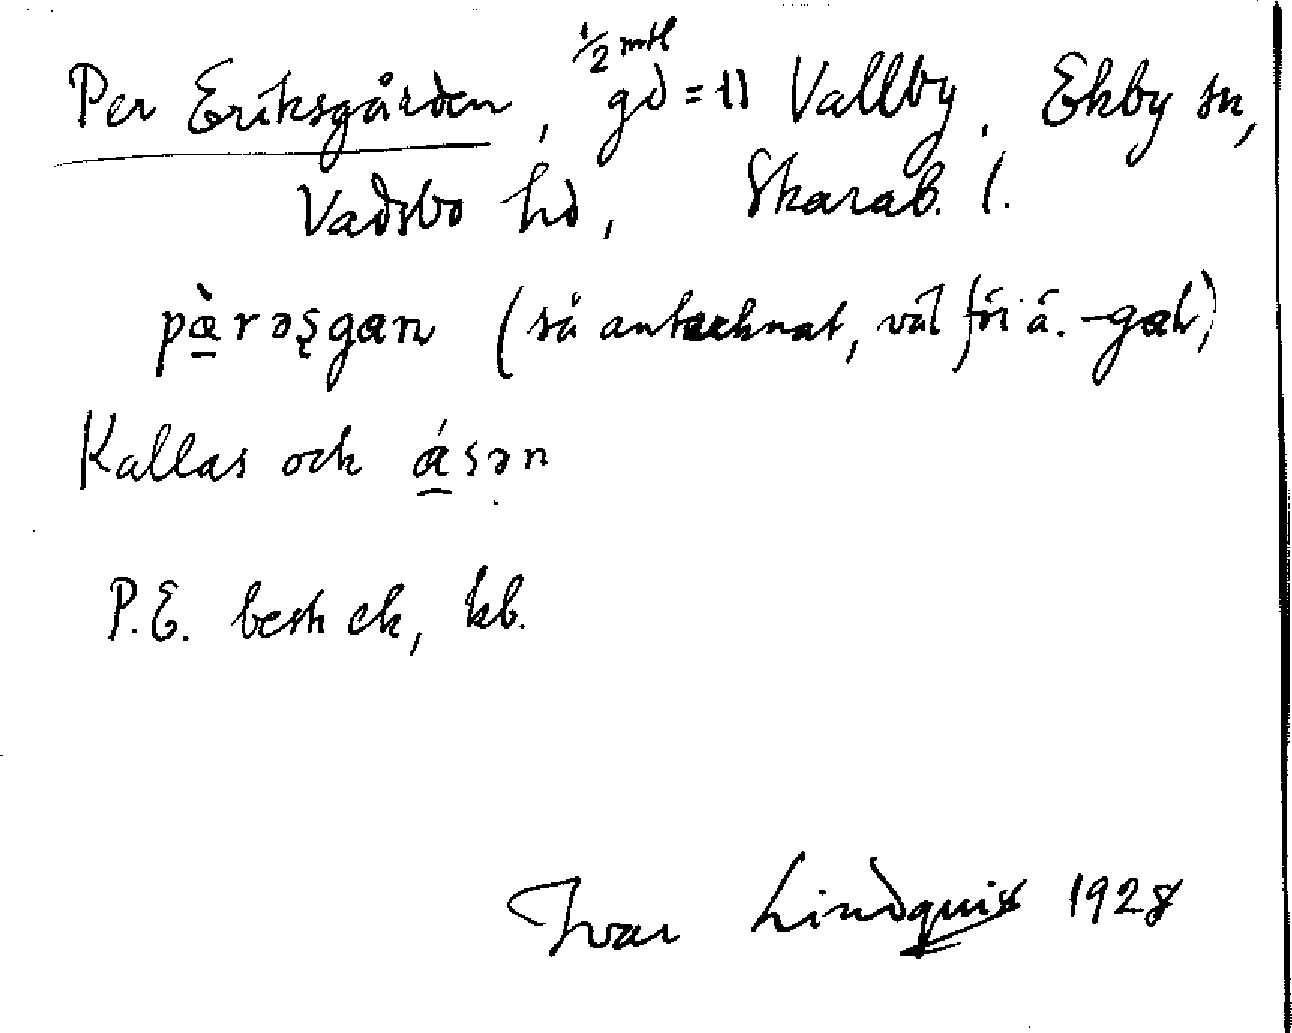 Per Eriksgården, 1/2 mtl gd = 11 Vallby. Ekby sn,
Vadsbo hd, Skarab. l.
pà̱rəşgan (så antecknat, väl för ä. -gaṉ)
Kallas och á̱sən
P.E. besk ek, kb.
Ivar Lindquist 1928